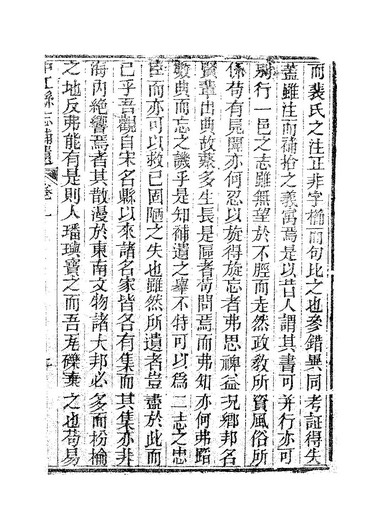 而裴氏之注正非字櫛而句比之也參錯異同考証得失
蓋雖注而補拾之義寓焉是以昔人謂其書可并行亦可
別行一邑之志雖無望於不脛而走然政敎所資風俗所
係苟有見聞亦何忍以旋得旋忘者弗思裨益況鄉邦名
賢輩出典故綦多生長是區者苟問焉而弗知亦何弗貽
數典而忘之譏乎是知補遺之舉不特可以爲二志之忠
臣而亦可以救己固陋之失也雖然所遺者豈盡於此而
已乎吾觀自宋名縣以來諸名家皆各有集而其集亦非
海內絕響焉者其散漫於東南文物諸大邦必多而枌楡
之地反弗能有是則人璠璵寶之而吾瓦礫棄之也苟易
江縣志補遺 卷一